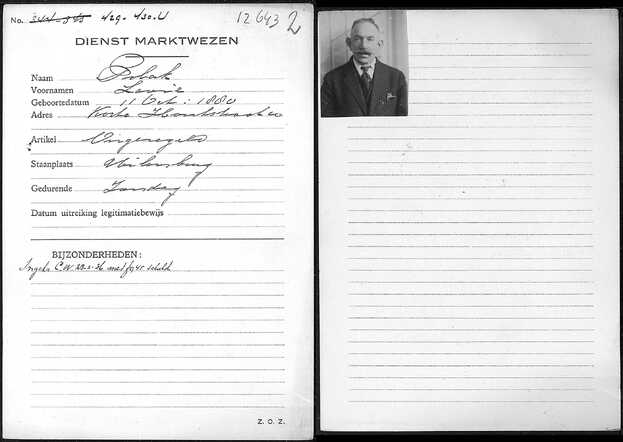 No. 344-345 429-430-U 12643 2
DIENST MARKTWEZEN
Naam Polak
Voornamen Levie
Geboortedatum 11 Oct: 1880
Adres Korte Houtstraat
Artikel Ongeregeld
Staanplaats Uilenburg
Gedurende Zondag
Datum uitreiking legitimatiebewijs
BIJZONDERHEDEN:
schuld
Z. O. Z.